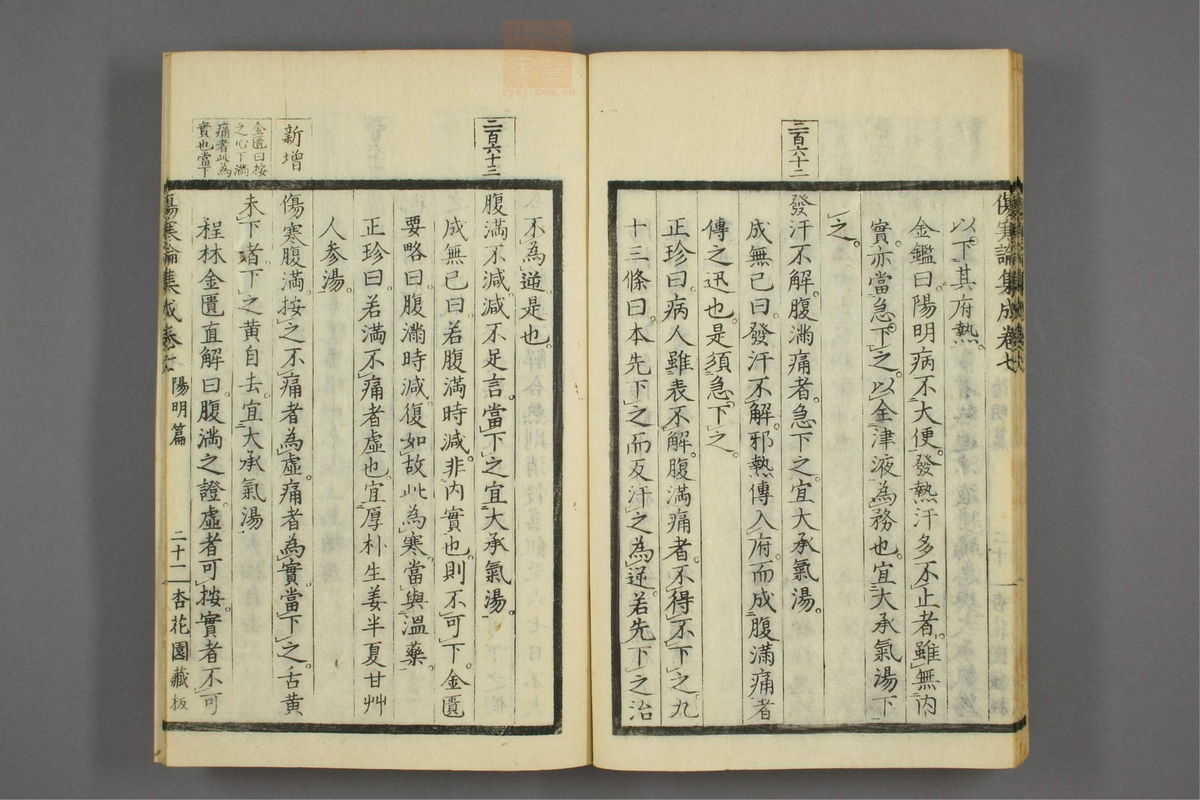 傷寒論集成卷七
以下其府熱。
金鑑曰。陽明病不大便。發熱汗多不止者。雖無內
實。亦當急下之。以全津液為務也。宜大承氣湯下
之。
二百六十二
發汗不解。腹滿痛者。急下之。宜大承氣湯。
成無已曰。發汗不解。邪熱傳入府。而成腹滿痛者
傳之迅也。是須急下之。
正珍曰。病人雖表不解。腹滿痛者。不得不下之。九
十三條曰。本先下之。而反汗之為逆。若先下之治
不為逆是也。
二百六十三
腹滿不減。減不足言。當下之。宜大承氣湯。
成無已曰。若腹滿時減。非內實也。則不可下。金匱
要略曰。腹滿時減。復如故。此為寒。當與溫藥。
正珍曰。若滿不痛者虛也。宜厚朴生姜半夏甘艸
人參湯。
新增
傷寒腹滿。按之不痛者為虛。痛者為實。當下之。舌黃
未下者。下之黃自去。宜大承氣湯
金匱曰按
之心下滿
痛者此為
實也當下
程林金匱直解曰。腹滿之證。虛者可按。實者不可
傷寒論集成卷七 陽明篇 二十二 杏花園藏板